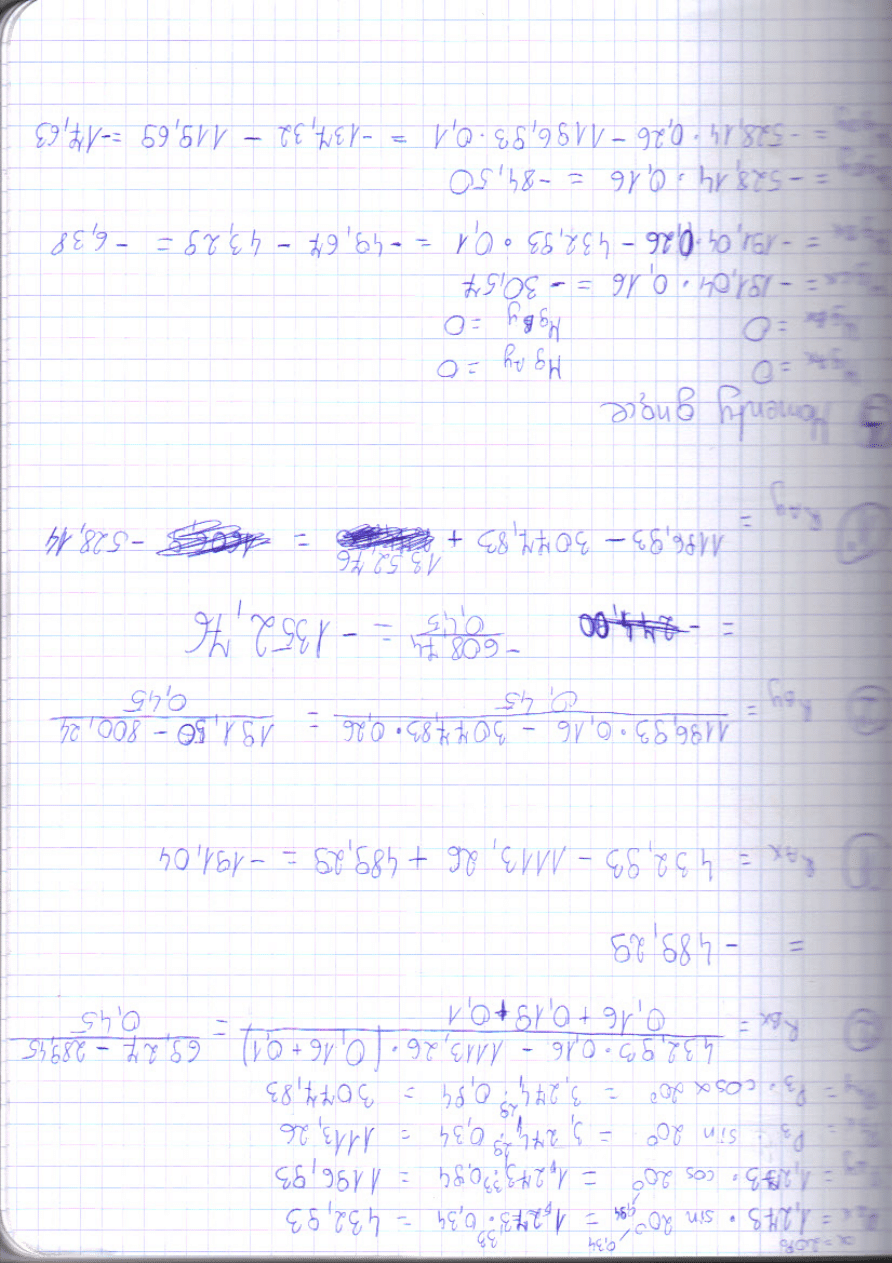 α = 20° 0,34 0,94
P₂ₓ = 1,273 · sin 20° = 1,273,33 · 0,34 = 432,93
= 1,273 · cos 20° = 1,273,33 · 0,94 = 1196,93
= P₃ · sin 20° = 3,274,29 · 0,34 = 1113,26
= P₃ · cosα 20° = 3,274,29 · 0,94 = 3077,83
R_Bx = (432,93 · 0,16 − 1113,26 · (0,16 + 0,1)) / (0,16 + 0,19 + 0,1) = (69,27 − 289,45) / 0,45
= − 489,29
R_Ax = 432,93 − 1113,26 + 489,29 = −191,04
R_By = (1196,93 · 0,16 − 3077,83 · 0,26) / 0,45 = (191,50 − 800,24) / 0,45
= −608,74 / 0,45 = −1352,76
R_Ay = 1196,93 − 3077,83 + 1352,76 = −528,14
Momenty gnące
= 0 Mg Ay = 0
= 0 Mg By = 0
= −191,04 · 0,16 = −30,57
= −191,04 · 0,26 − 432,93 · 0,1 = −49,67 − 43,29 = −6,38
= −528,14 · 0,16 = −84,50
= −528,14 · 0,26 − 1196,93 · 0,1 = −137,32 − 119,69 = −17,63